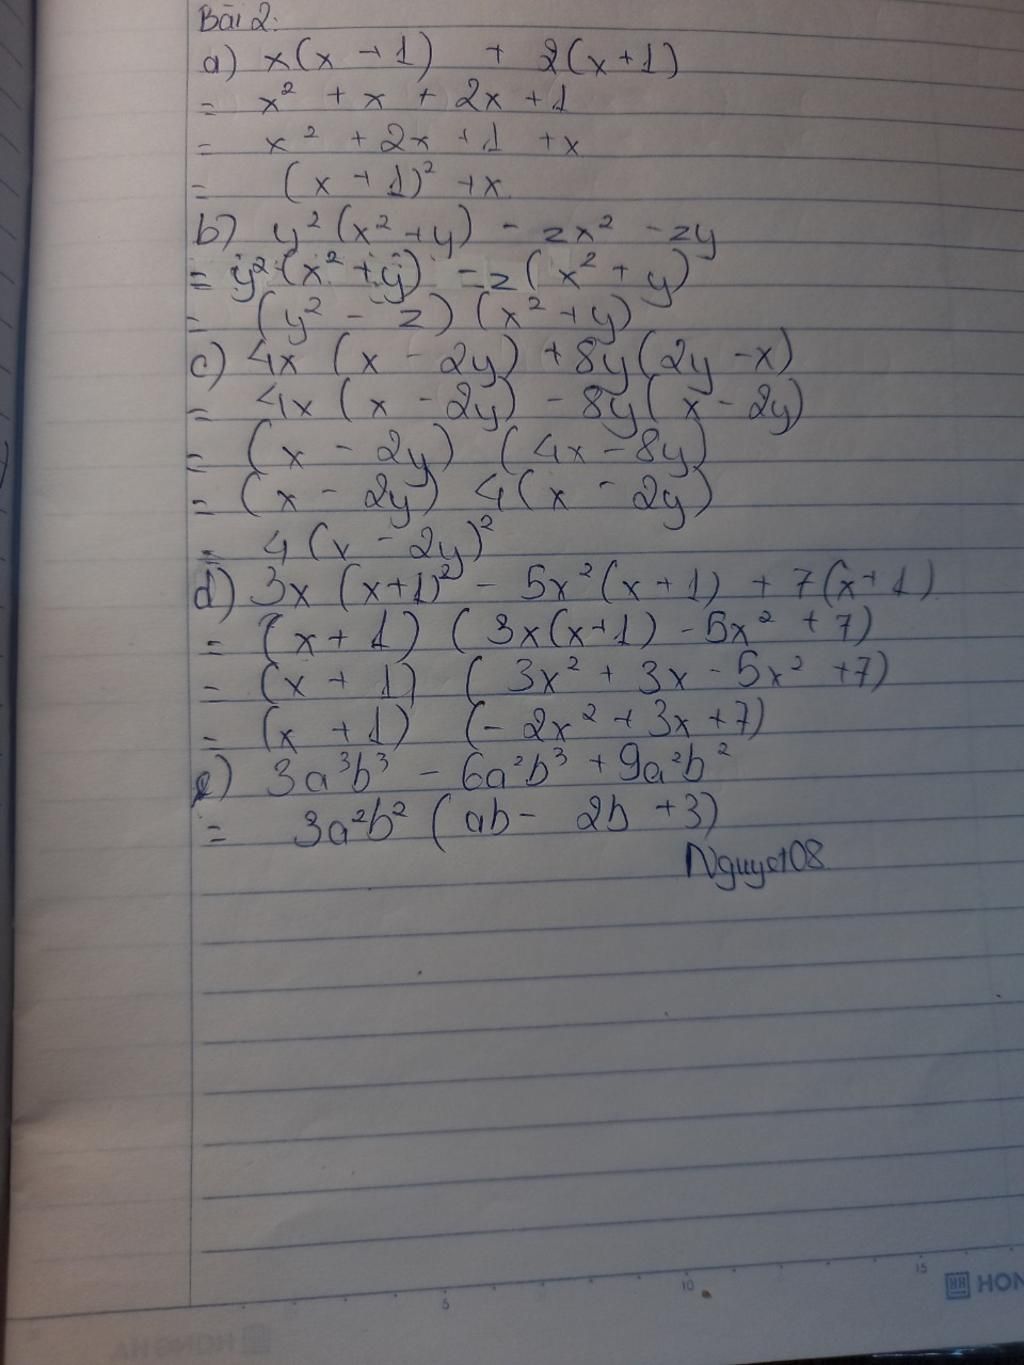 Bài 2:
a) x(x+1) + 2(x+1)
= x² + x + 2x + 1
= x² + 2x + 1 + x
= (x + 1)² + x
b) y²(x²+y) - zx² - zy
= y²(x²+y) - z(x²+y)
= (y² - z)(x²+y)
c) 4x (x - 2y) + 8y(2y - x)
= 4x (x - 2y) - 8y(x - 2y)
= (x - 2y) (4x - 8y)
= (x - 2y) 4(x - 2y)
= 4(x - 2y)²
d) 3x (x+1)² - 5x²(x+1) + 7(x+1)
= (x+1) (3x(x+1) - 5x² + 7)
= (x + 1) (3x² + 3x - 5x² + 7)
= (x + 1) (-2x² + 3x + 7)
e) 3a³b³ - 6a²b³ + 9a²b²
= 3a²b² (ab - 2b + 3)
5
10
15
HON
HONG HA